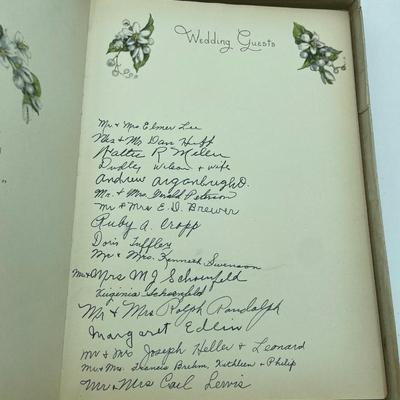 Wedding Guests
Mr & Mrs Elmer Lee
Mrs & Mr Dan Huff
Hattie R
Dudley Wilson & wife
Andrew
Mr. & Mrs. Gerald Peterson
Mr & Mrs E. D. Brewer
Ruby A. Cropp
Doris Tuffley
Mr & Mrs. Kenneth Swenson
Mr & Mrs M J Schoenfeld
Virginia Schoenfeld
Mr & Mrs Ralph Randolph
Margaret Edlin
Mr & Mrs Joseph Heller & Leonard
Mr & Mrs. Francis Brehm, Kathleen & Philip
Mr & Mrs Carl Lewis